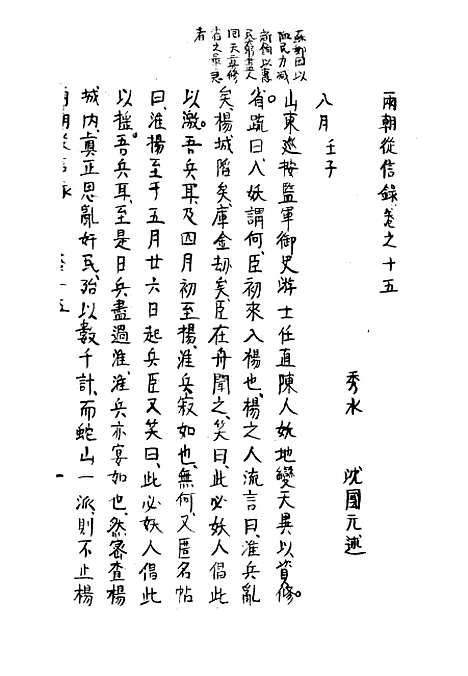 兩朝從信錄卷之十五
秀水 沈國元述
八月壬子
山東巡按監軍御史游士任直陳人妖地變天異以資修
省疏曰人妖謂何臣初來入楊也楊之人流言曰淮兵亂
矣楊城陷矣庫金劫矣臣在舟聞之笑曰此必妖人倡此
以激吾兵耳及四月初至楊淮兵寂如也無何又匿名帖
曰淮楊至于五月廿六日起兵臣又笑曰此必妖人倡此
以搖吾兵耳至是日兵盡過淮淮兵亦宴如也然密查楊
城內真正思亂奸民殆以數千計而蛇山一派則不止楊
以
民力
以惠
回天要修
省之
者
兩朝從信錄 卷十五 一